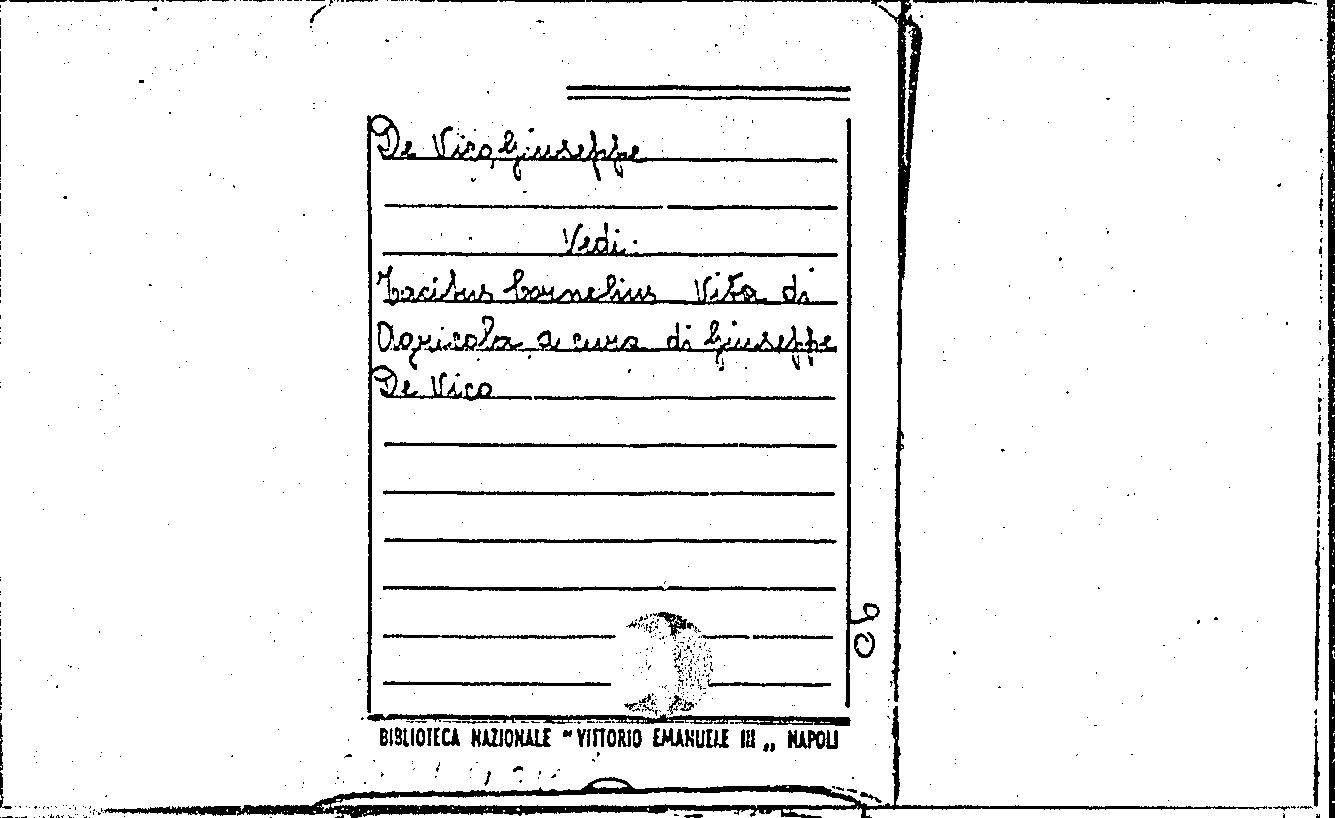 De Vico, Giuseppe
Vedi:
Tacitus Cornelius Vita di
Agricola a cura di Giuseppe
De Vico
90
BIBLIOTECA NAZIONALE "VITTORIO EMANUELE III „ NAPOLI